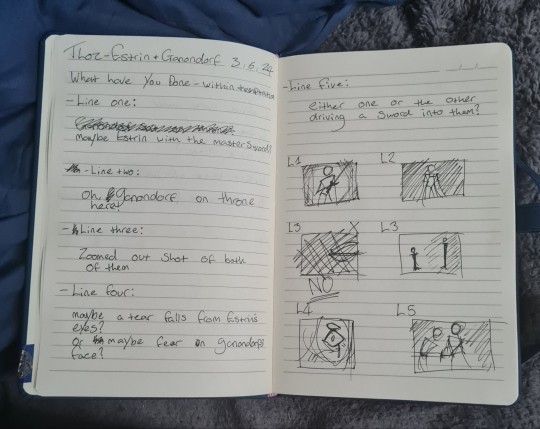 Thoz-Estrin + Ganondorf 3.6.24
What have You Done - within temptation
- Line one:
maybe Estrin with the master sword?
- Line two:
Oh Ganondorf on throne
here!
- Line three:
Zoomed out shot of both
of them
- Line four:
maybe a tear falls from Estrin's
eyes?
Or maybe fear on ganondorf's
face?
- Line five:
either one or the other
driving a sword into them?
L1
L2
L3
L3
NO
L4
L5